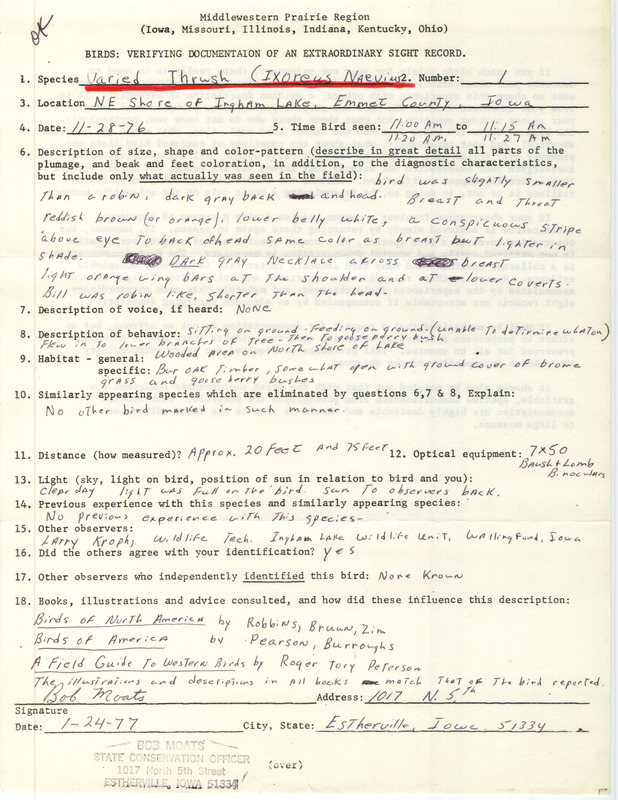 OK
Middlewestern Prairie Region
(Iowa, Missouri, Illinois, Indiana, Kentucky, Ohio)
BIRDS: VERIFYING DOCUMENTAION OF AN EXTRAORDINARY SIGHT RECORD.
1. Species Varied Thrush (Ixoreus Naevius 2. Number: 1
3. Location NE Shore of Ingham Lake, Emmet County, Iowa
4. Date: 11-28-76 5. Time Bird seen: 11:00 Am to 11:15 Am
11:20 Am, 11:27 Am
6. Description of size, shape and color-pattern (describe in great detail all parts of the
plumage, and beak and feet coloration, in addition, to the diagnostic characteristics,
but include only what actually was seen in the field): bird was slightly smaller
Than a robin, dark gray back and head. Breast and Throat
reddish brown (or orange). lower belly white, a conspicuous stripe
above eye To back of head same color as breast but lighter in
shade. Dark gray Necklace across breast
light orange wing bars at The shoulder and at lower coverts.
Bill was robin like, shorter Than the head.
7. Description of voice, if heard: None
8. Description of behavior: Sitting on ground - Feeding on ground - (unable To determine what on)
Flew in to lower branches of Tree - Then To gooseberry bush
9. Habitat - general: Wooded Area on North Shore of Lake
specific: Bur Oak Timber, somewhat open with ground cover of brome
grass and gooseberry bushes
10. Similarly appearing species which are eliminated by questions 6,7 & 8, Explain:
No other bird marked in such manner.
11. Distance (how measured)? Approx. 20 Feet and 75 feet 12. Optical equipment: 7x50
Baush + Lomb
Binoculars
13. Light (sky, light on bird, position of sun in relation to bird and you):
Clear day light was full on the bird. Sun To observers back.
14. Previous experience with this species and similarly appearing species:
No previous experience with This species-
15. Other observers:
Larry Kroph, Wildlife Tech. Ingham Lake Wildlife Unit, Wallingford, Iowa
16. Did the others agree with your identification? Yes
17. Other observers who independently identified this bird: None Known
18. Books, illustrations and advice consulted, and how did these influence this description:
Birds of North America by Robbins, Bruun, Zim
Birds of America by Pearson, Burroughs
A Field Guide To Western Birds by Roger Tory Peterson
The illustrations and descriptions in all books match that of The bird reported.
Bob Moats Address: 1017 N. 5th
Signature
Date: 1-24-77 City, State: Estherville, Iowa. 51334
BOB MOATS
STATE CONSERVATION OFFICER
1017 North 5th Street
ESTHERVILLE, IOWA 51334
(over)